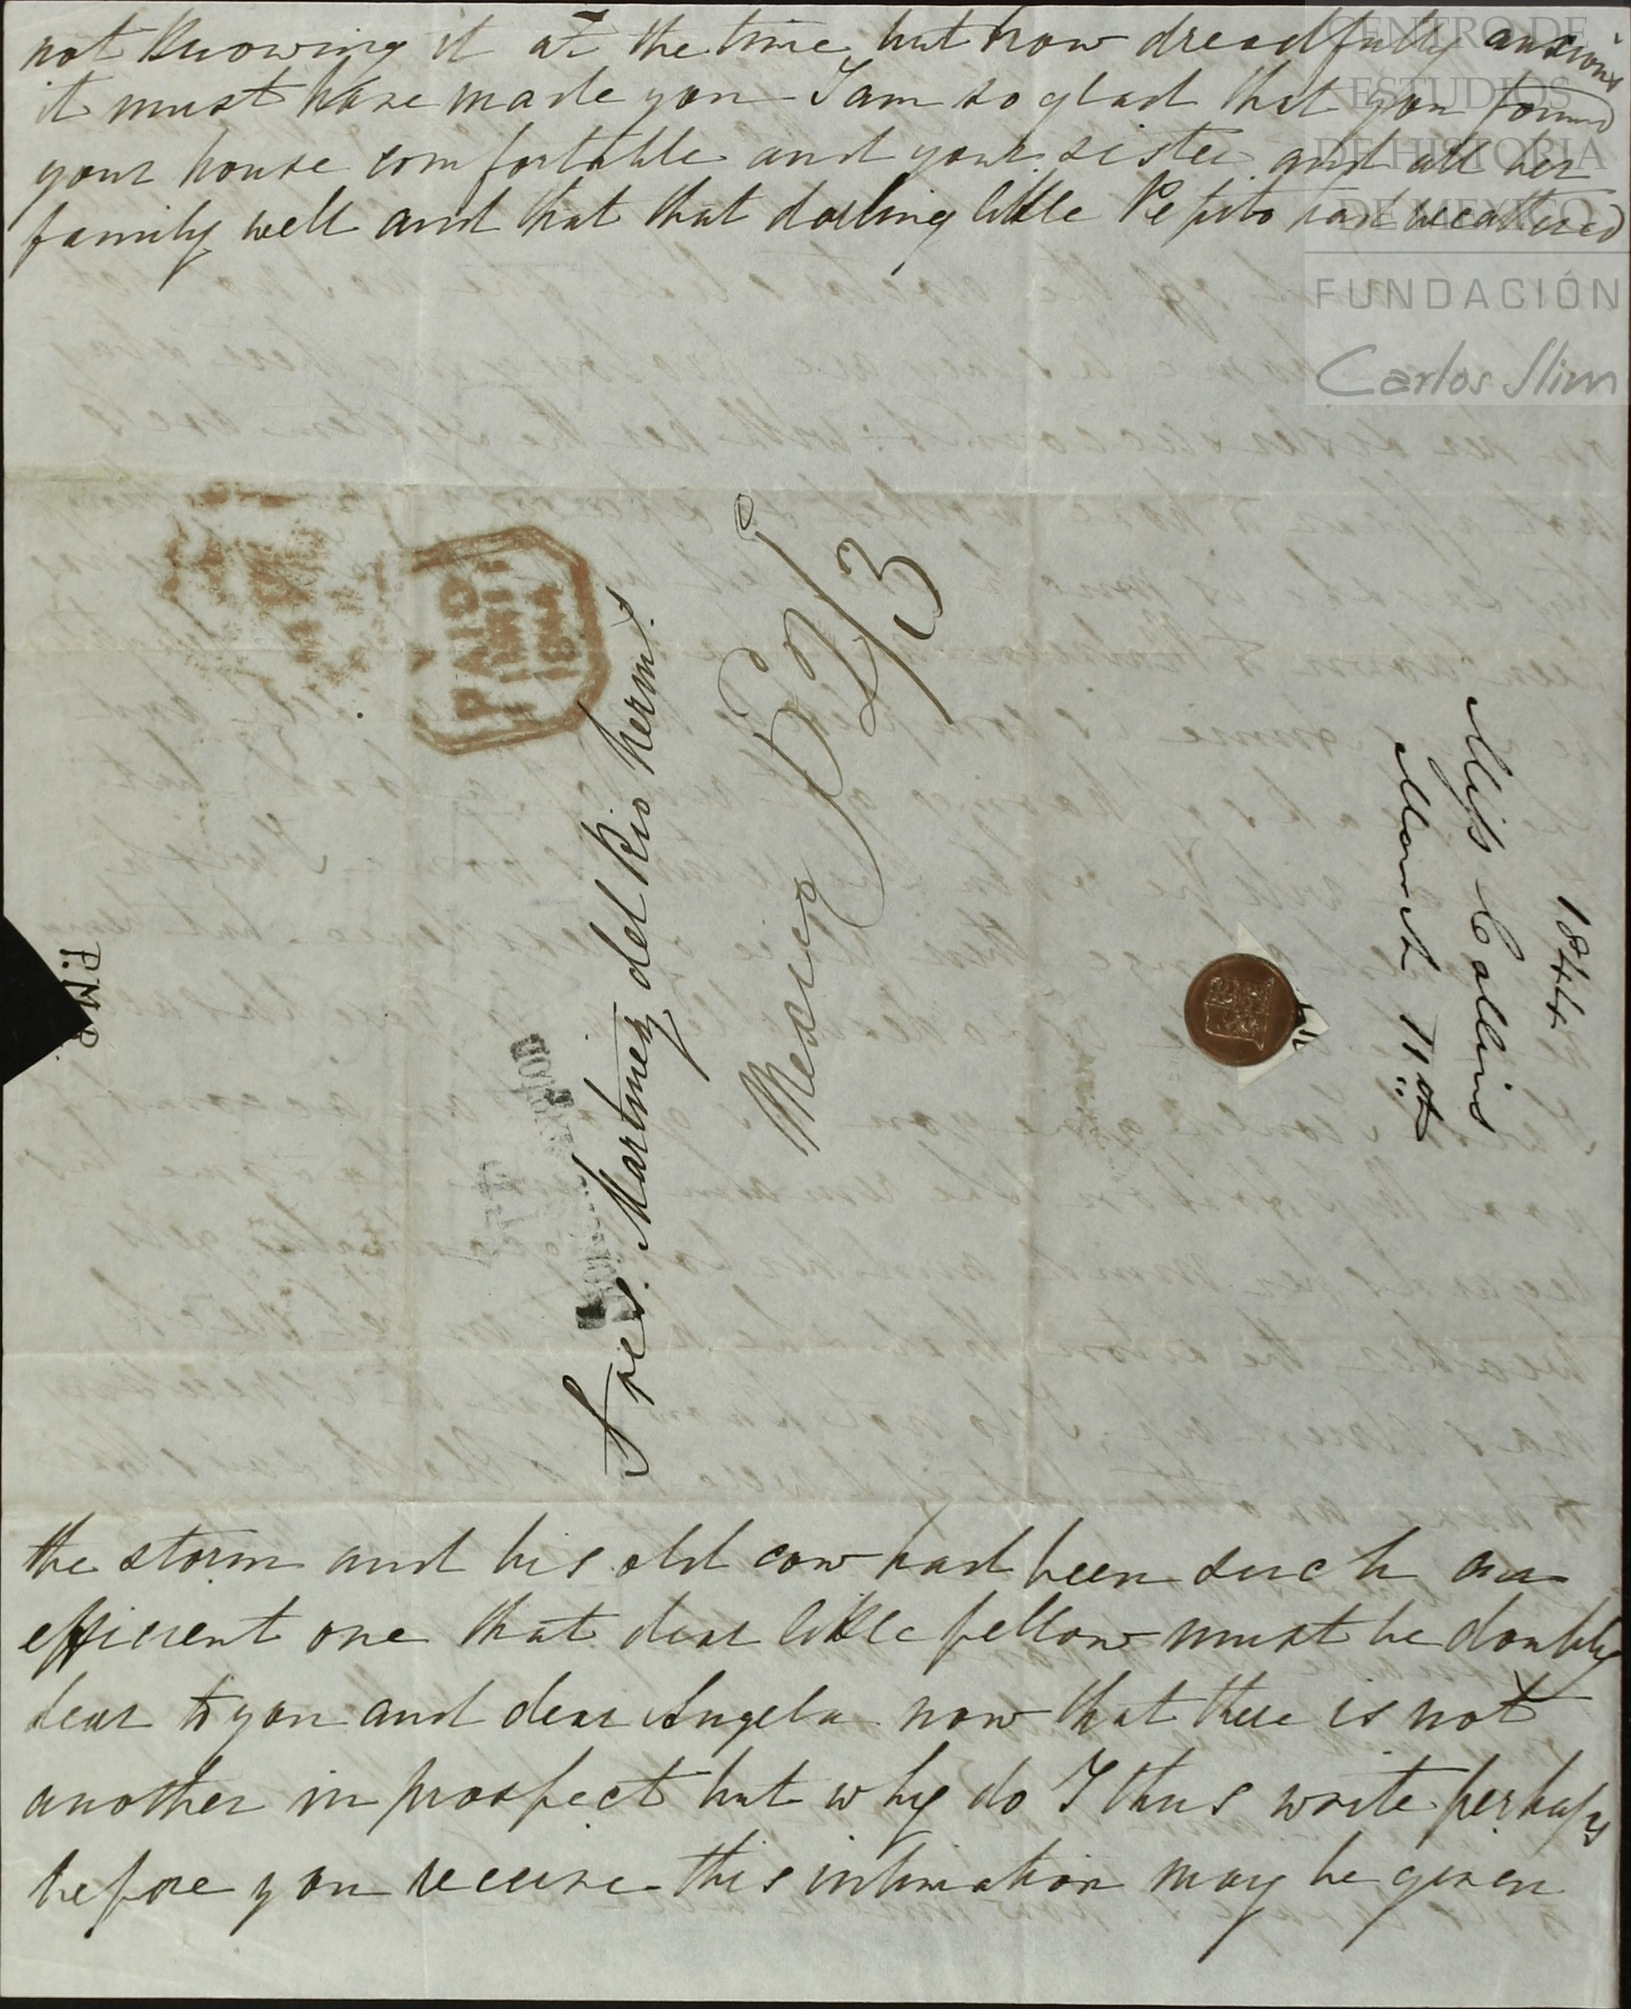 not knowing it at the time but how dreadfully anxious
it must have made you - I am so glad that you found
your house comfortable and your sister and all her
family well and that that darling little Pepito had weathered
CENTRO DE
ESTUDIOS
DE HISTORIA
DE MEXICO
FUNDACIÓN
Carlos Slim
PAID
1844
Sres. Martinez del Rio herms.
Mexico
2/3
1844
Miss Collins
March
P.M.R.
the storm and his old cow had been such an
efficient one that dear little fellow must be doubly
dear to you and dear Angela now that there is not
another in prospect but why do I thus write perhaps
before you receive this intimation may be given